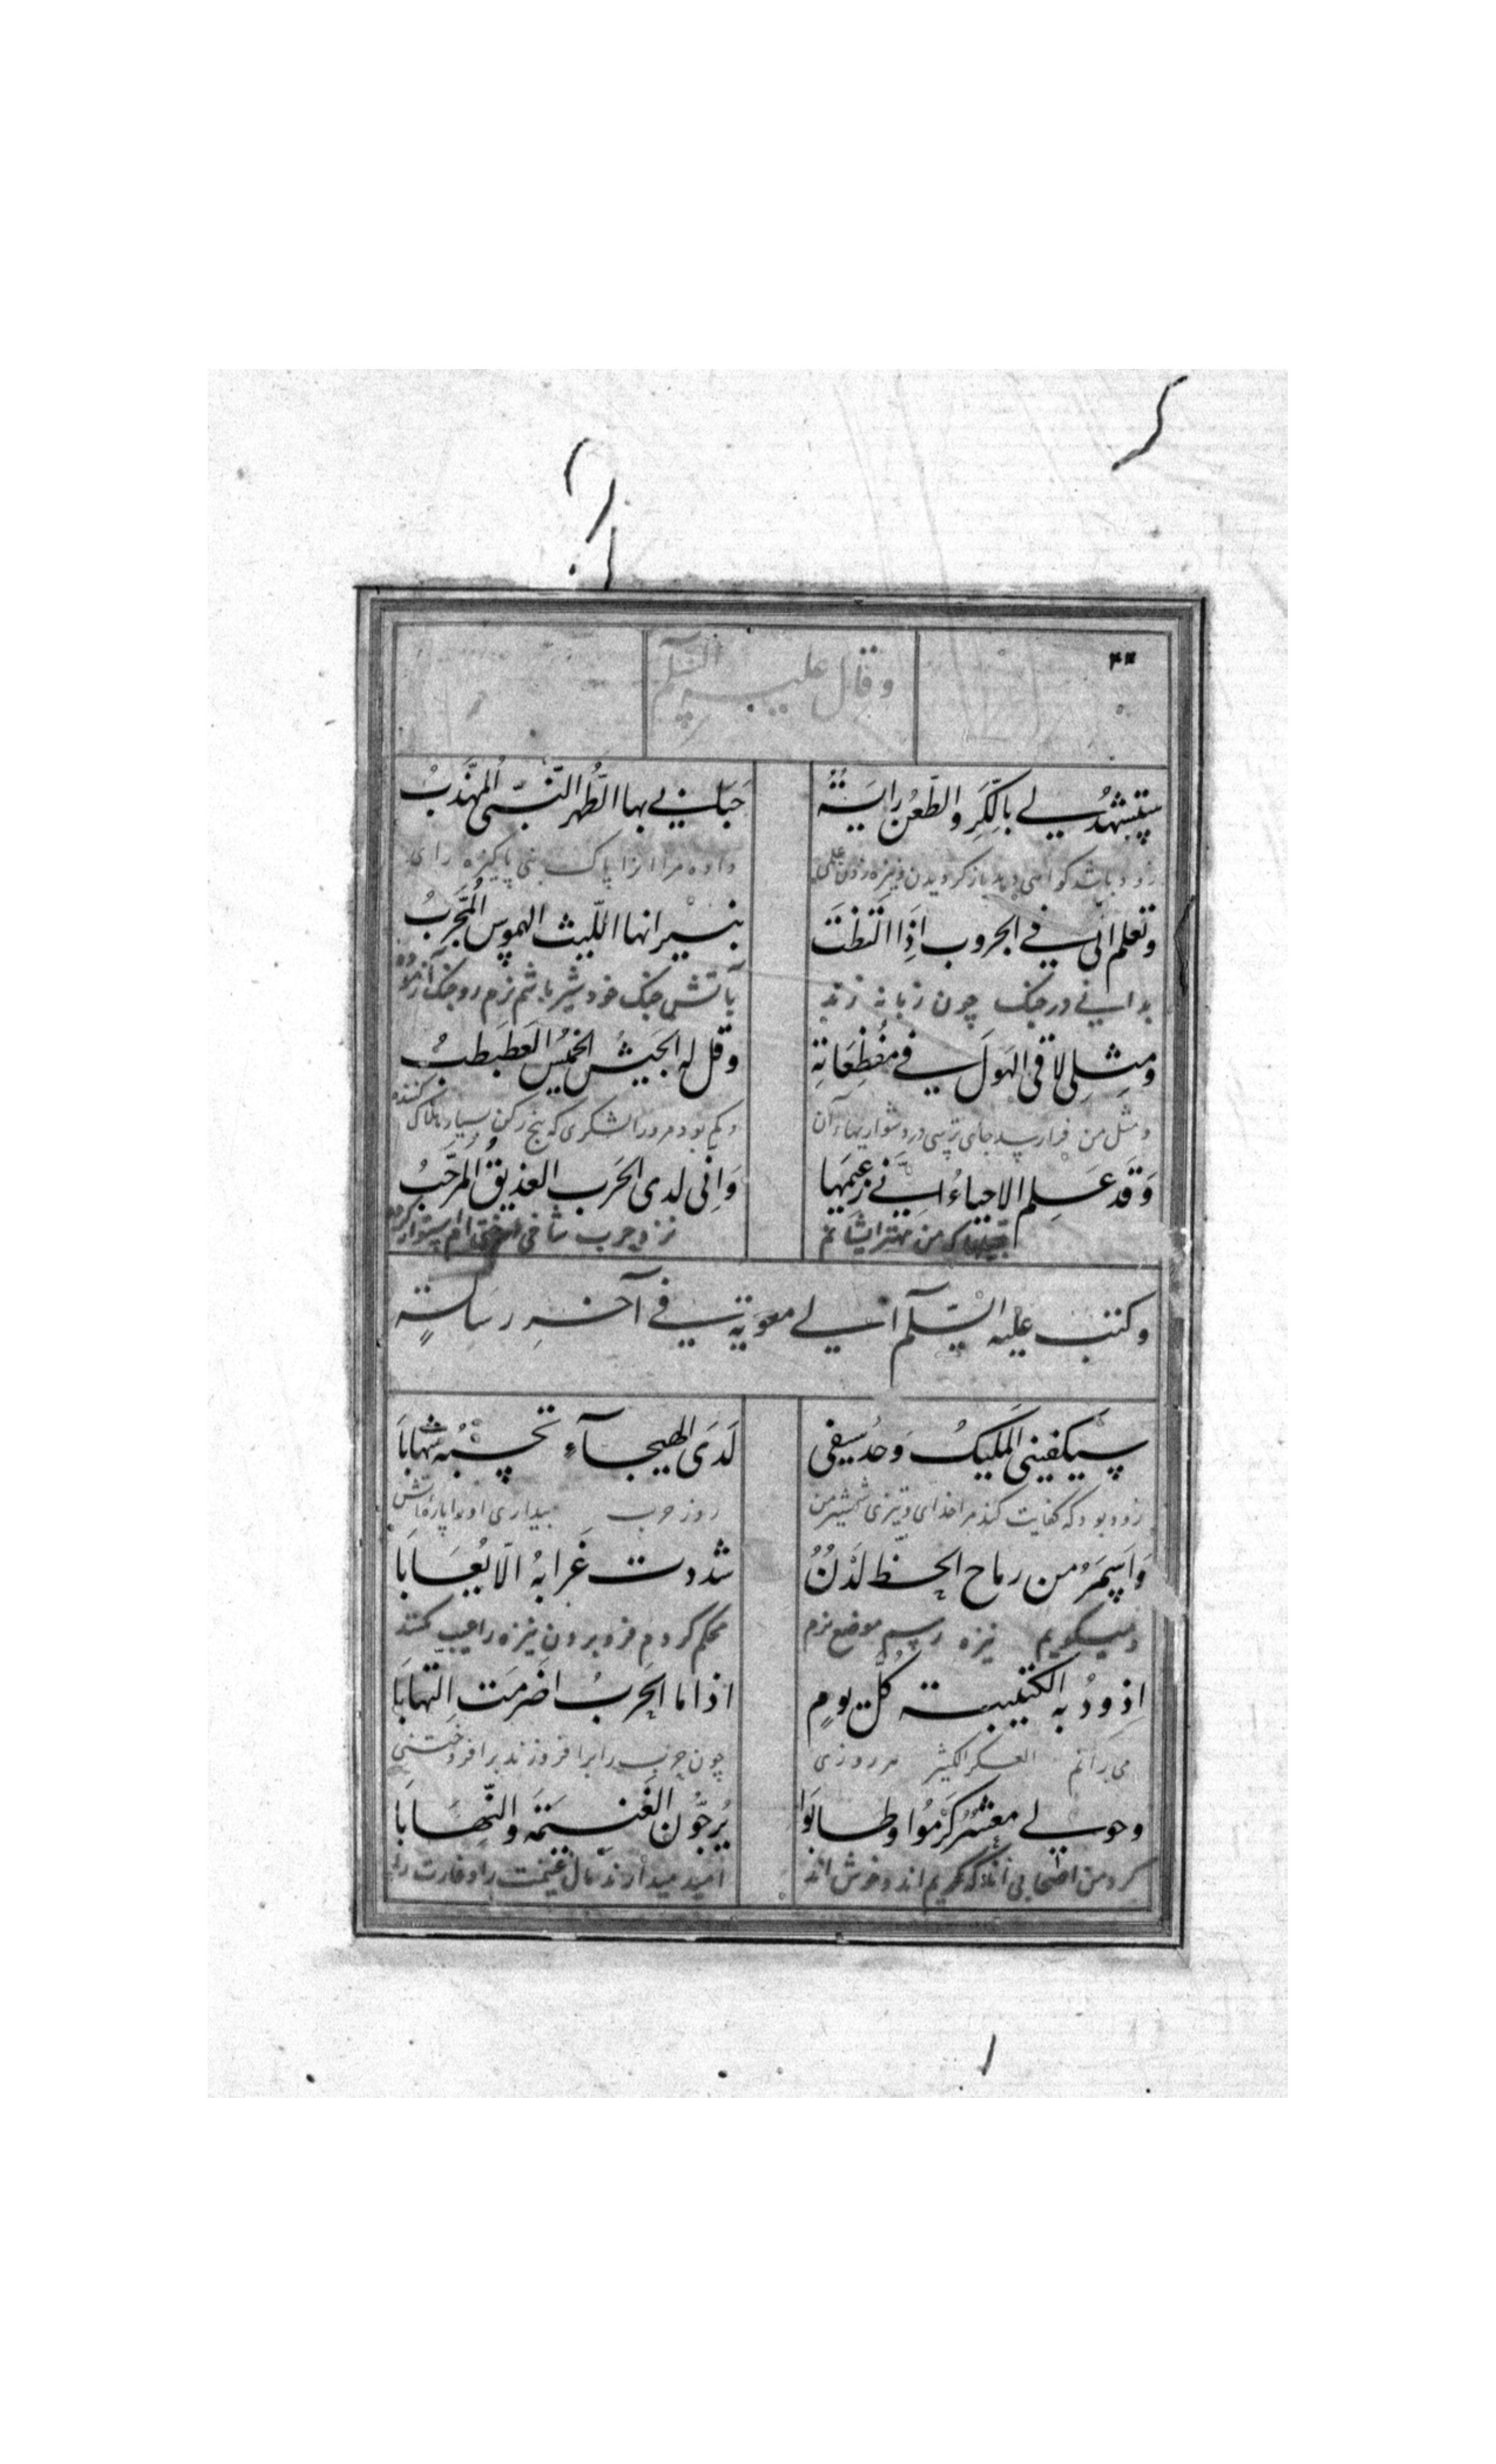 وقال عليه السلم
ستشهد لي بالكر والطعن راية حباني بها الطهر النبي المهذب
زود باشد گواهی دهد باز گردیدن و نیزه زدن علمی داده مرا انرا پاک نبی پاکیزه رای
وتعلم انی فی الحروب اذا التظت بنیرانها اللیث الهموس المجرب
بدانی در جنک چون زبانه زند بآتش جنک خود شیر باشم نرم رو جنک آزموده
ومثلی لاقی الهول فی مفظعاته وقل له الجیش الخمیس العطبطب
و مثل من فرا رسد جای ترسی در دشواریهاء آن و کم بود مرورا لشکری که پنج رکن بسیار هلاک کننده
وقد علم الاحیاء انی زعیمها وانی لدی الحرب العذیق المرجب
که من مهتر ایشانم نزد حرب شاخی استوار کرده
وکتب علیه السلم الی معویة فی آخر رسالة
سیکفینی الملیک وحد سیفی لدی الهیجاء تحسبه شهابا
زود بود که کفایت کند مرا خدای و تیزی شمشیر من روز حرب پنداری او را پاره آتش
واسمر من رماح الخط لدن شددت غرابه الا یعابا
نیزه موضع نرم محکم کردم فرو بردن نیزه را عیب نکنند
اذود به الکتیبة کل یوم اذا ما الحرب اضرمت التهابا
می رانم العسکر الکثیر هر روزی چون حرب را برافروزند برافروختنی
وحولی معشر کرموا وطابوا یرجون الغنیمة والنهابا
کرد من اصحابی آنانکه کریم اند و خوش اند امید میدارند مال غنیمت را و غارت را